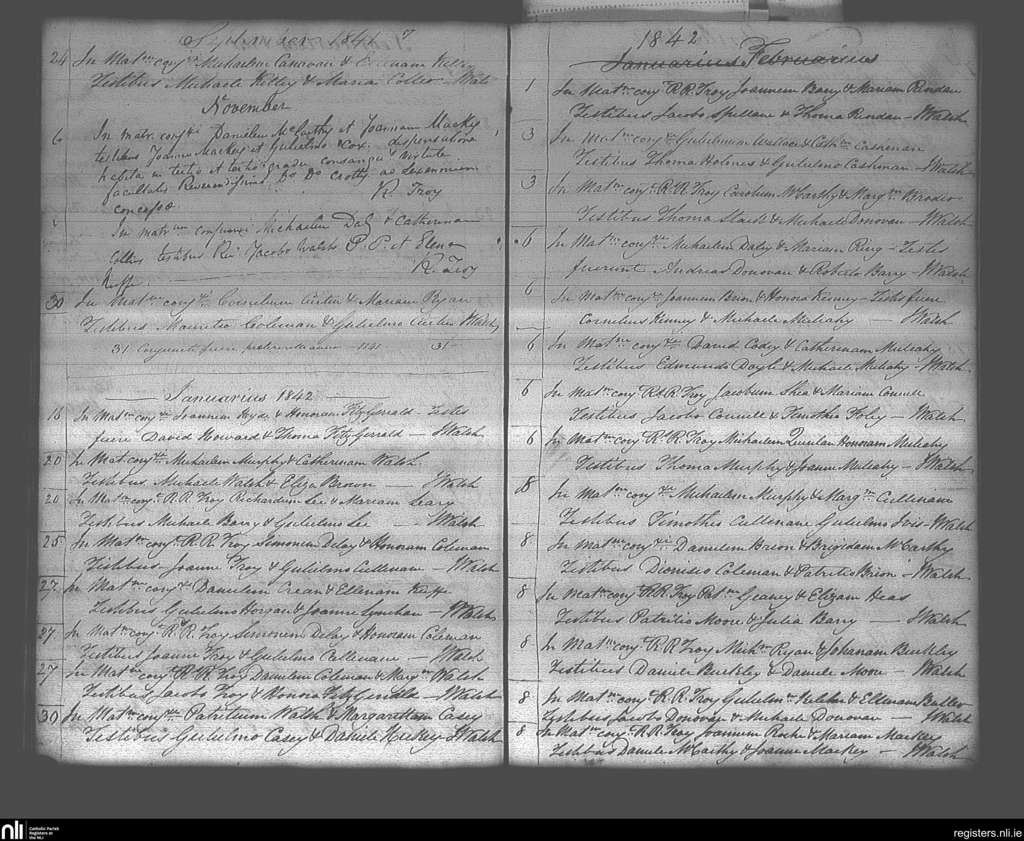 1841
24 In Matr conj Michaelem Canavan & Kelly
Testibus Michaele Kelley & Maria
November
6 In matr. conj Danielem McCarthy et Joannam Mackey
testibus Joanne Mackey et Gulielmo Cox. dispensatione
habita in tertio et tertio gradu consangu virtute
facultatis Reverendissimi Do Do Crotty ad
concessæ R Troy
In matr conjunxi Michaelem Daly & Catherinam
testibus Rev. Jacobo Walsh P. P. et Elena
Keffe. R Troy
30 In Matm conj Cornelium Curtin & Mariam Ryan
Testibus Mauritio Coleman & Gulielmo Curtin JWalsh
31 Conjuncti fuere 1841 31
Januarius 1842
16 In Matm conj Joannem Hyde & Honoram FitzGerald - Testes
fuere David Howard & Thoma FitzGerrald - JWalsh
20 In Mat conj Michaelem Murphy & Catherinam Walsh
Testibus Michaele Walsh & Eliza Brown - JWalsh
20 In Matm conj R.R Troy Richardum Lee & Mariam Leary
Testibus Michaele Barry & Gulielmo Lee - JWalsh
25 In Matm conj R R Troy Simonem Delay & Honoram Coleman
Testibus Joanne Troy & Gulielmo Cullenane - JWalsh
27 In Matm conj Danielem Crean & Ellenam Keffe
Testibus Gulielmo Horgan & Joanne Lynehan - JWalsh
27 In Matm conj R.R. Troy Simonem Delay & Honoram Coleman
Testibus Joanne Troy & Gulielmo Cullenane - JWalsh
27 In Matm conj R.R. Troy Danielem Coleman & Margm Walsh
Testibus Jacobo Troy & Honora - JWalsh
30 In Matm conj Patritium Walsh & Margarettam Casey
Testibus Gulielmo Casey & Daniele Hickey JWalsh
1842
Januarius Februarius
1 In Matm conj R.R. Troy Joannem Barry & Mariam Riordan
Testibus Jacobo Spillane & Thoma Riordan - JWalsh
3 In Matm conj Gulielmum Wallace & Cathm Cashman
Testibus Thoma Holmes & Gulielmo Cashman - JWalsh
3 In Matm conj R.R Troy Carolum McCarthy & Margm Brodes
Testibus Thoma Slade & Michaele Donovan - JWalsh
6 In Matm conj Michaelem Daley & Mariam Ring - Testes
fuerunt Andreas Donovan & Roberto Barry - JWalsh
6 In Matm conj Joannem Brion & Honora Kenney - Testes fuere
Cornelius Kenney & Michaele Mulcahy - JWalsh
6 In Matm conj David Casey & Catherinam Mulcahy
Testibus Edmundo Doyle & Michaele Mulcahy - JWalsh
6 In Matm conj R.R Troy Jacobum Shea & Mariam Connell
Testibus Jacobo Connell & Timothio Foley - JWalsh
6 In Matm conj R.R. Troy Michaelem Quinlan Honoram Mulcahy
Testibus Thoma Murphy & Joanne Mulcahy - JWalsh
8 In Matm conj Michaelem Murphy & Margm Cullinane
Testibus Timotheo Cullenane Gulielmo Ivis - JWalsh
8 In Matm conj Danielem Brion & Brigidam McCarthy
Testibus Dionisio Coleman & Patritio Brion - JWalsh
8 In Matm conj R.R Troy Patm Geaney & Elizam Heas
Testibus Patritio Moore & Julia Barry - JWalsh
8 In Matm conj R.R Troy Michm Ryan & Johanam Buckley
Testibus Daniele Buckley & Daniele Moore - Walsh
8 In Matm conj R.R Troy Gulielm Keleher & Ellenam Butler
Testibus Jacobo Donovan & Michaele Donovan - JWalsh
8 In Matm conj R.R Troy Joannem Roche & Mariam Mackey
Testibus Daniele McCarthy & Joanne Mackey - JWalsh
nli Catholic Parish
Registers at
the NLI
registers.nli.ie